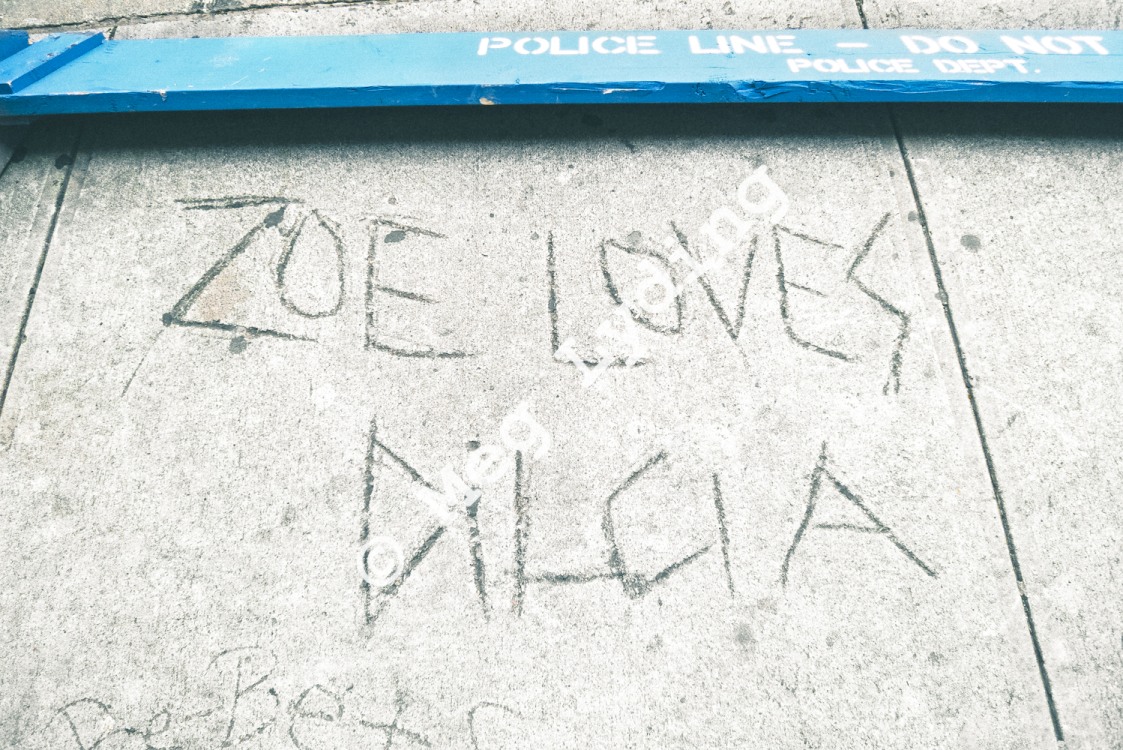 POLICE LINE - DO NOT
POLICE DEPT.
ZOE LOVES
DILCIA
© Meg Inding